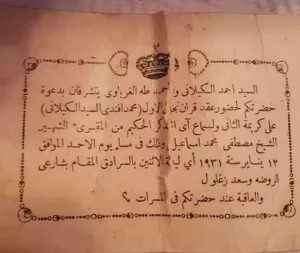 السيد احمد الكيلانى و احمد طه الغرباوى يتشرفان بدعوة
حضرتكم لحضور عقد قران نجل الاول (محمد افندى السيد الكيلانى)
على كريمة الثانى ولسماع آى الذكر الحكيم من المقرىء الشهير
الشيخ مصطفى محمد اسماعيل وذلك فى مساء يوم الاحد الموافق
١٢ يناير سنة ١٩٣١ أى ليلة الاثنين بالسرادق المقام بشارعى
الروضه وسعد زغلول
والعاقبة عند حضرتكم فى المسرات ؟